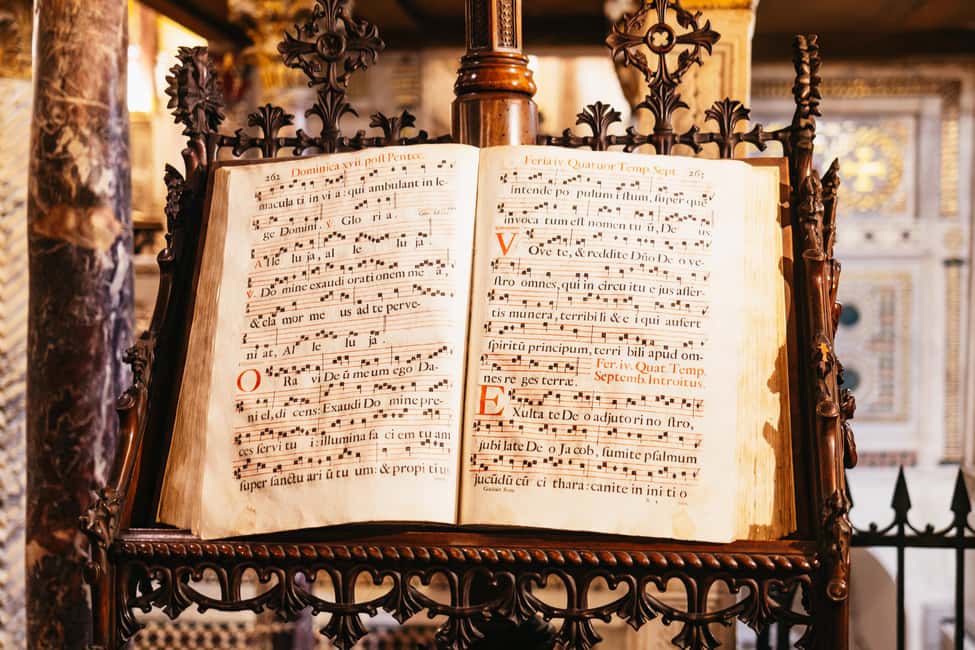 262 Dominica xvii. post Pentec.
macula ti in vi a : qui ambulant in le-
ge Domini. ℣. Glo ri a.
Al le lu ja, al le lu ja.
℣. Do mine exaudi orati onem me a,
& cla mor me us ad te perve-
ni at, Al le lu ja.
O Ra vi De ũ me um ego Da-
ni el, di cens: Exaudi Do mine pre-
ces servi tu i: illumina fa ci em tu am
super sanctu ari ũ tu um: & propi ti us
Feria iv. Quatuor Temp. Sept. 263
intende po pulum istum, super que
invoca tum est nomen tu ũ, De us.
V Ove te, & reddite Dño De o ve-
stro omnes, qui in circu itu e jus affer-
tis munera, terribi li & e i qui aufert
spiritũ principum, terri bili apud om-
nes re ges terræ. Fer. iv. Quat. Temp.
Septemb. Introitus.
E Xulta te De o adjutori no stro,
jubi late De o Ja cob, sumite psalmum
jucũdũ cũ ci thara: canite in ini ti o